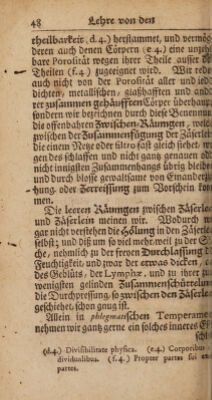 48 Lehre von den
theilbarkeit (d.4.) herstammet, und vermög
deren auch denen Cörpern (e.4.) eine unzehl
bare Porosität wegen ihrer Theile ausser de
Theilen (f.4.) zugeeignet wird. Wir rede
auch nicht von der Porosität aller und ied
dichten, metallischen, glaßhafften und ander
rer zusammen gehäufften Cörper überhaupt
sondern wir bezeichnen durch diese Benennun
die offenbahren Zwischen-Räumgen, welc
zwischen der Zusammenfügung der Zäserle
die einem Netze oder filtro fast gleich siehet, we
gen des schlaffen und nicht gantz genauen od
nicht innigsten Zusammenhangs übrig bleibe
und durch blosse gewaltsame von Einanderzi
hung, oder Zerreissung zum Vorschein kom
men.
Die leeren Räumgen zwischen Zäserlei
und Zäserlein meinen wir. Wodurch w
gar nicht verstehen die Hölung in den Zäserle
selbst; und diß um so viel mehr, weil zu der S
che, nehmlich zu der freyen Durchlassung d
Feuchtigkeit, und zwar der etwas dicken, e
des Geblüts, der Lymphæ, und zu ihrer zu
wenigsten gelinden Zusammenschüttelun
die Durchpressung, so zwischen den Zäserle
geschiehet, schon gnug ist.
Allein in phlegmatischen Temperame
nehmen wir gantz gerne ein solches inneres
(d.4.) Divisibilitate physica. (e.4.) Corporibus
dividualibus. (f.4.) Propter partes sui ex
partes.